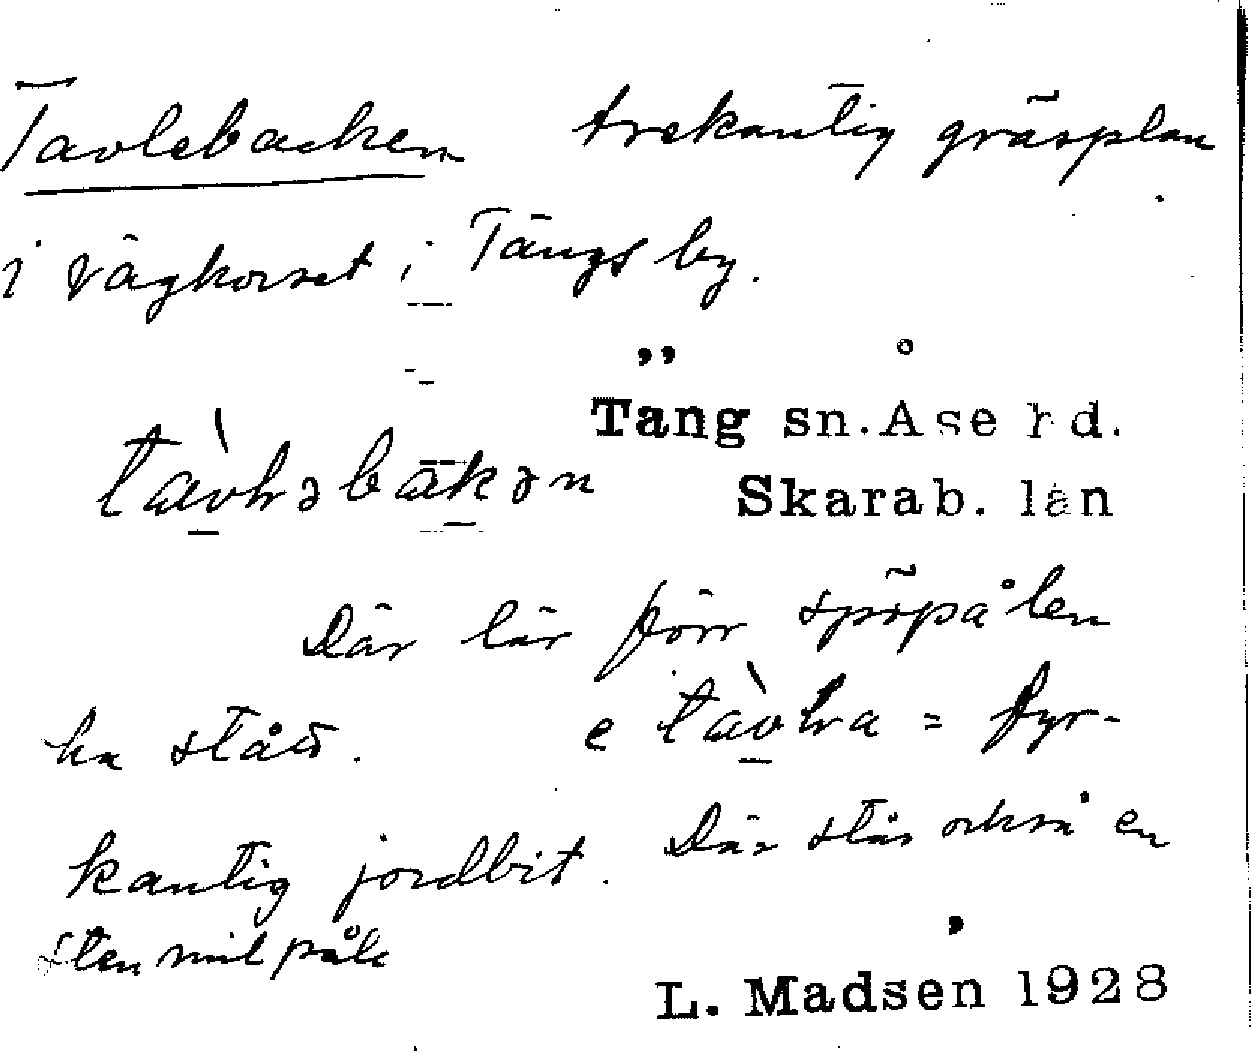 Tavlebacken trekantig gräsplan
i vägkorset i Tängs by.
Täng sn. Åse hd.
tàvlɘbàkɘn Skarab. län
Där lär förr spöpålen
ha stått. e tàvla = fyr-
kantig jordbit. Där står också en
sten milpåle
L. Madsen 1928